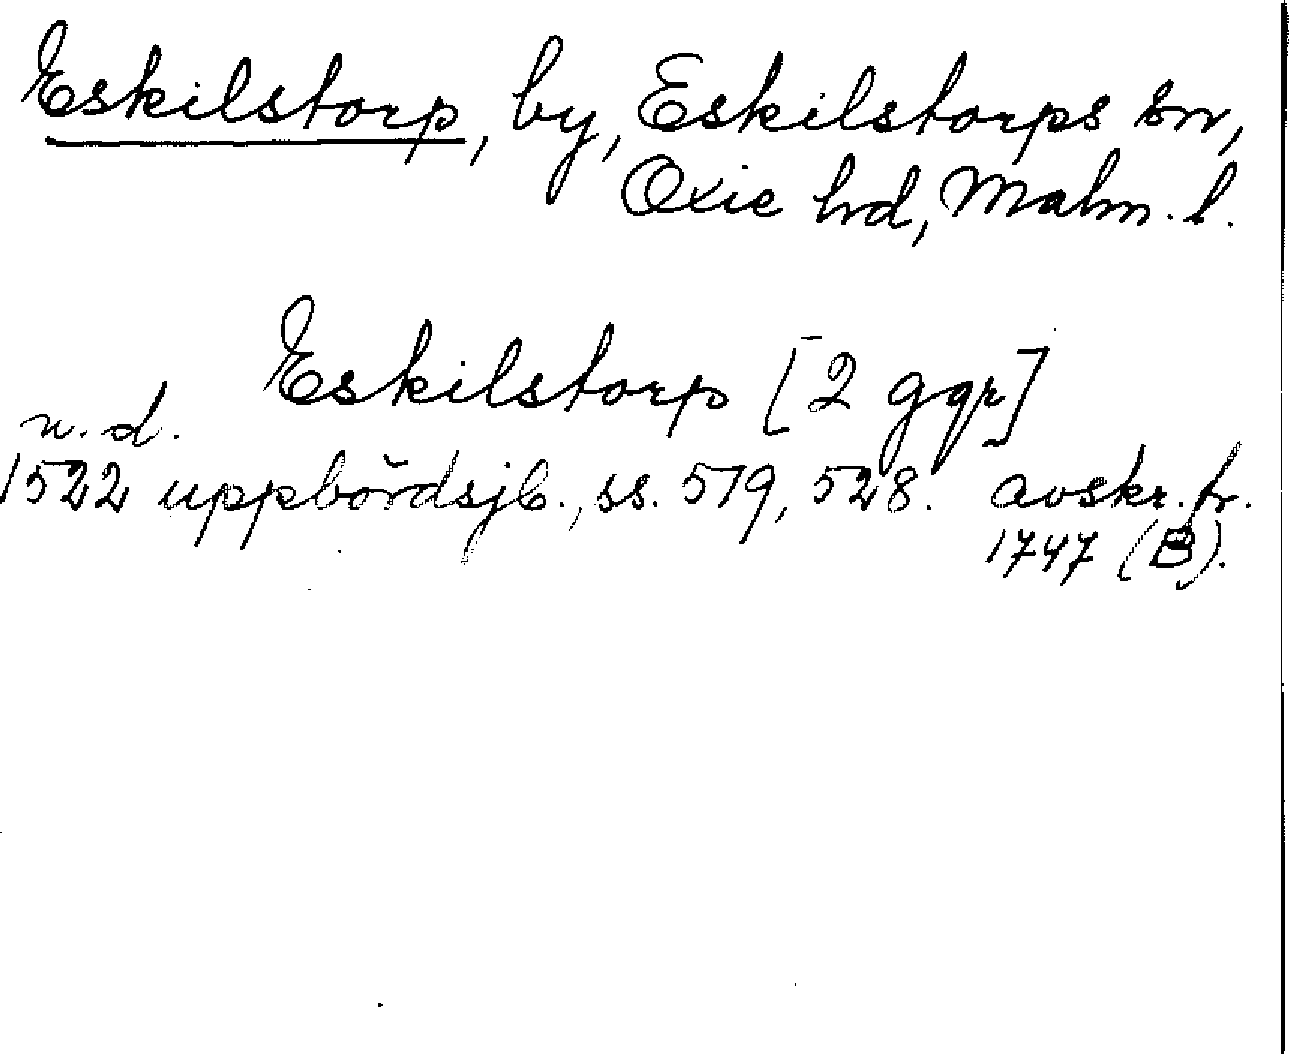 Eskilstorp, by, Eskilstorps sn,
Oxie hd, Malm. l.
Eskilstorp [2 ggr]
n. d.
1522 uppbördsjb., ss. 519, 528. avskr. fr.
1747 (B).